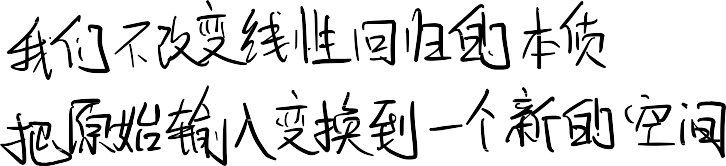 我们不改变线性回归的本质
把原始输入变换到一个新的空间